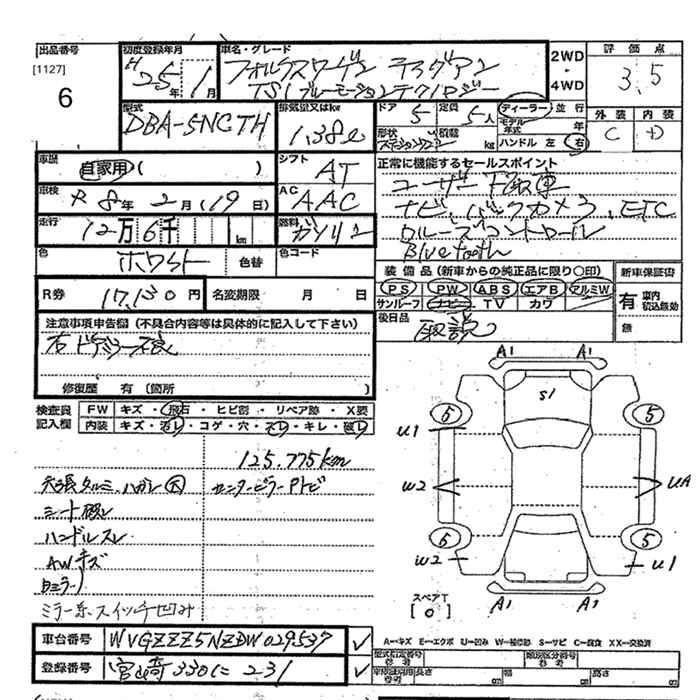 出品番号
[1127]
6
初度登録年月
H25年 1月
車名・グレード
フォルクスワーゲン ティグアン
TSI ブルーモーションテクノロジー
2WD
・
4WD
評価点
3.5
外装 内装
C D
型式
DBA-5NCTH
排気量又はkw
1.38ℓ
ドア 5
定員 5人
形状 ステーションワゴン
積載 kg
ディーラー 並行
モデル年式 年
ハンドル 左 右
車歴
自家用 ( )
シフト
AT
車検
R8年 2月 (19日)
AC
AAC
走行
12万6千 km
燃料
ガソリン
色
ホワイト
色替
色コード
R券
17,130円
名変期限 月 日
正常に機能するセールスポイント
ユーザー下取車
ナビ、バックカメラ、ETC
クルーズコントロール
Bluetooth
装備品(新車からの純正品に限り○印)
PS PW ABS エアB アルミW
サンルーフ ナビ TV カワ
新車保証書
有 車内積込無効
無
後日品
取説
注意事項申告欄 (不具合内容等は具体的に記入して下さい)
右ドアミラー不良
修復歴 有 (箇所 )
検査員記入欄
FW キズ・飛石・ヒビ割・リペア跡・X要
内装 キズ・汚レ・コゲ・穴・スレ・キレ・破レ
125.775km
天張タルミ、ハガレ大 センターピラー内トビ
シート破レ
ハンドルスレ
AWキズ
ミラー系スイッチ凹み
A1 A1
S1
5 5
U1
W2 UA
5 5
W2 U1
A1 A1
スペアT
[ 0 ]
車台番号
WVGZZZ5NZDW029537
登録番号
宮崎 330 に 231
A…キズ E…エクボ U…凹み W…補修跡 S…サビ C…腐食 XX…交換済
型式指定番号 参考
類別区分番号 参考
長さ cm
幅 cm
高さ cm